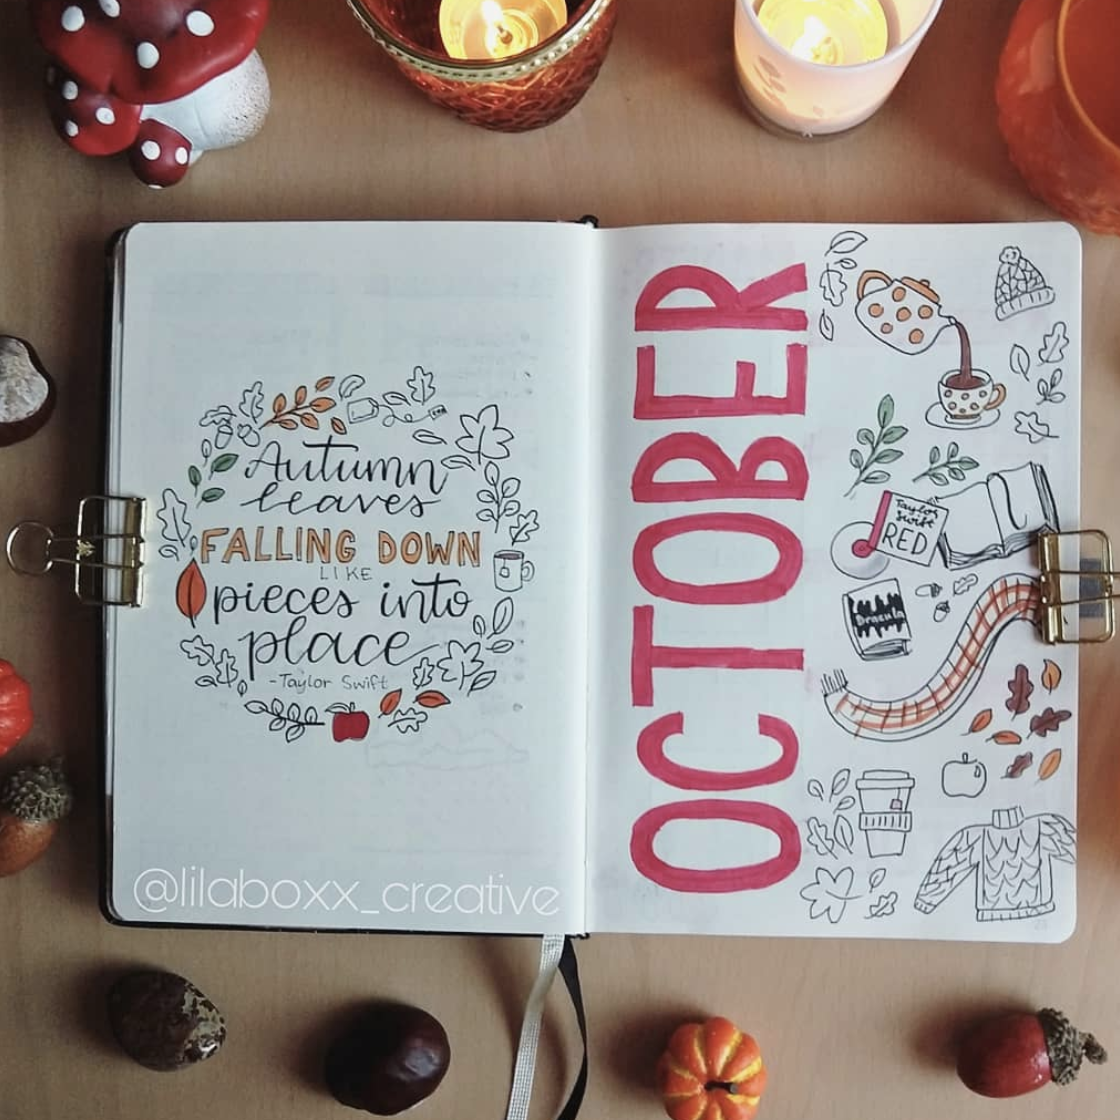 Autumn
leaves
FALLING DOWN
LIKE
pieces into
place
-Taylor Swift
@lilaboxx_creative
OCTOBER
Taylor
Swift
RED
Dracula